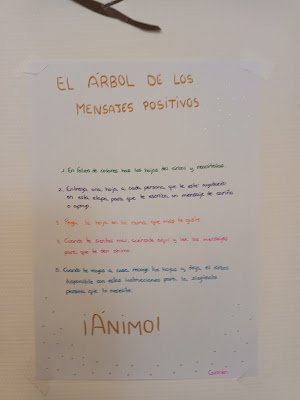 EL ÁRBOL DE LOS
MENSAJES POSITIVOS
1. En folios de colores haz las hojas del árbol y recórtalas.
2. Entrega una hoja a cada persona que te esté ayudando
en esta etapa, para que te escriba un mensaje de cariño
o apoyo.
3. Pega la hoja en la rama que más te guste.
4. Cuando te sientas mal, acércate aquí y lee los mensajes
para que te den ánimo.
5. Cuando te vayas a casa, recoge tus hojas y deja el árbol
disponible con estas instrucciones para la siguiente
persona que lo necesite.
¡ÁNIMO!
Carmen